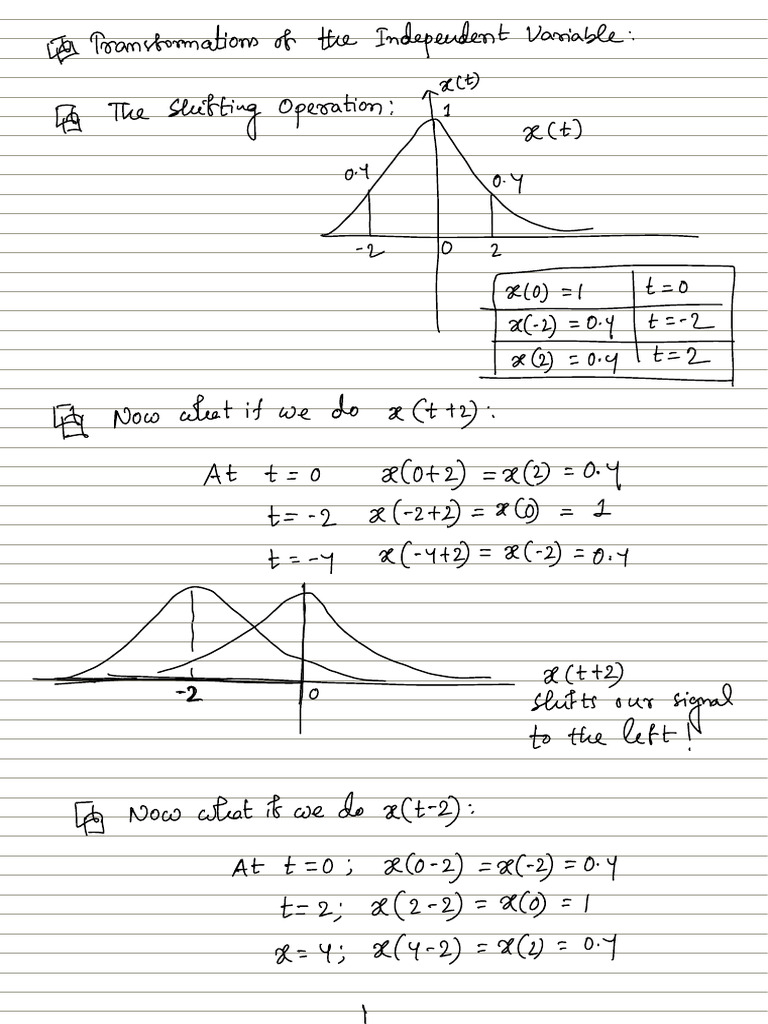 Transformations of the Independent Variable:
The Shifting Operation:
x(t)
1
x(t)
0.4
0.4
-2 0 2
x(0) = 1 t = 0
x(-2) = 0.4 t = -2
x(2) = 0.4 t = 2
Now what if we do x(t+2):
At t = 0 x(0+2) = x(2) = 0.4
t = -2 x(-2+2) = x(0) = 1
t = -4 x(-4+2) = x(-2) = 0.4
-2 0
x(t+2)
shifts our signal
to the left!
Now what if we do x(t-2):
At t = 0 ; x(0-2) = x(-2) = 0.4
t = 2; x(2-2) = x(0) = 1
x = 4; x(4-2) = x(2) = 0.4